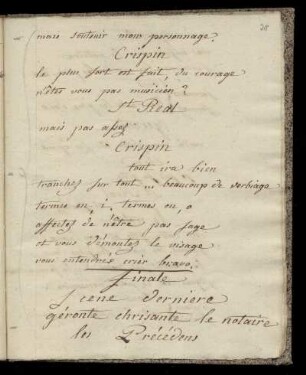 28
mais soutenir mon personnage?
Crispin
le plus fort est fait, du courage
n'êtes vous pas musicien?
St Réal
mais pas assez
Crispin
tout ira bien
tranchez sur tout ... beaucoup de verbiage
termes en, i, termes en, o
affectez de n'être pas sage
et vous démontez le visage
vous entendrez crier bravo.
finale
Scene derniere
géronte chrisante le notaire
les Précédens